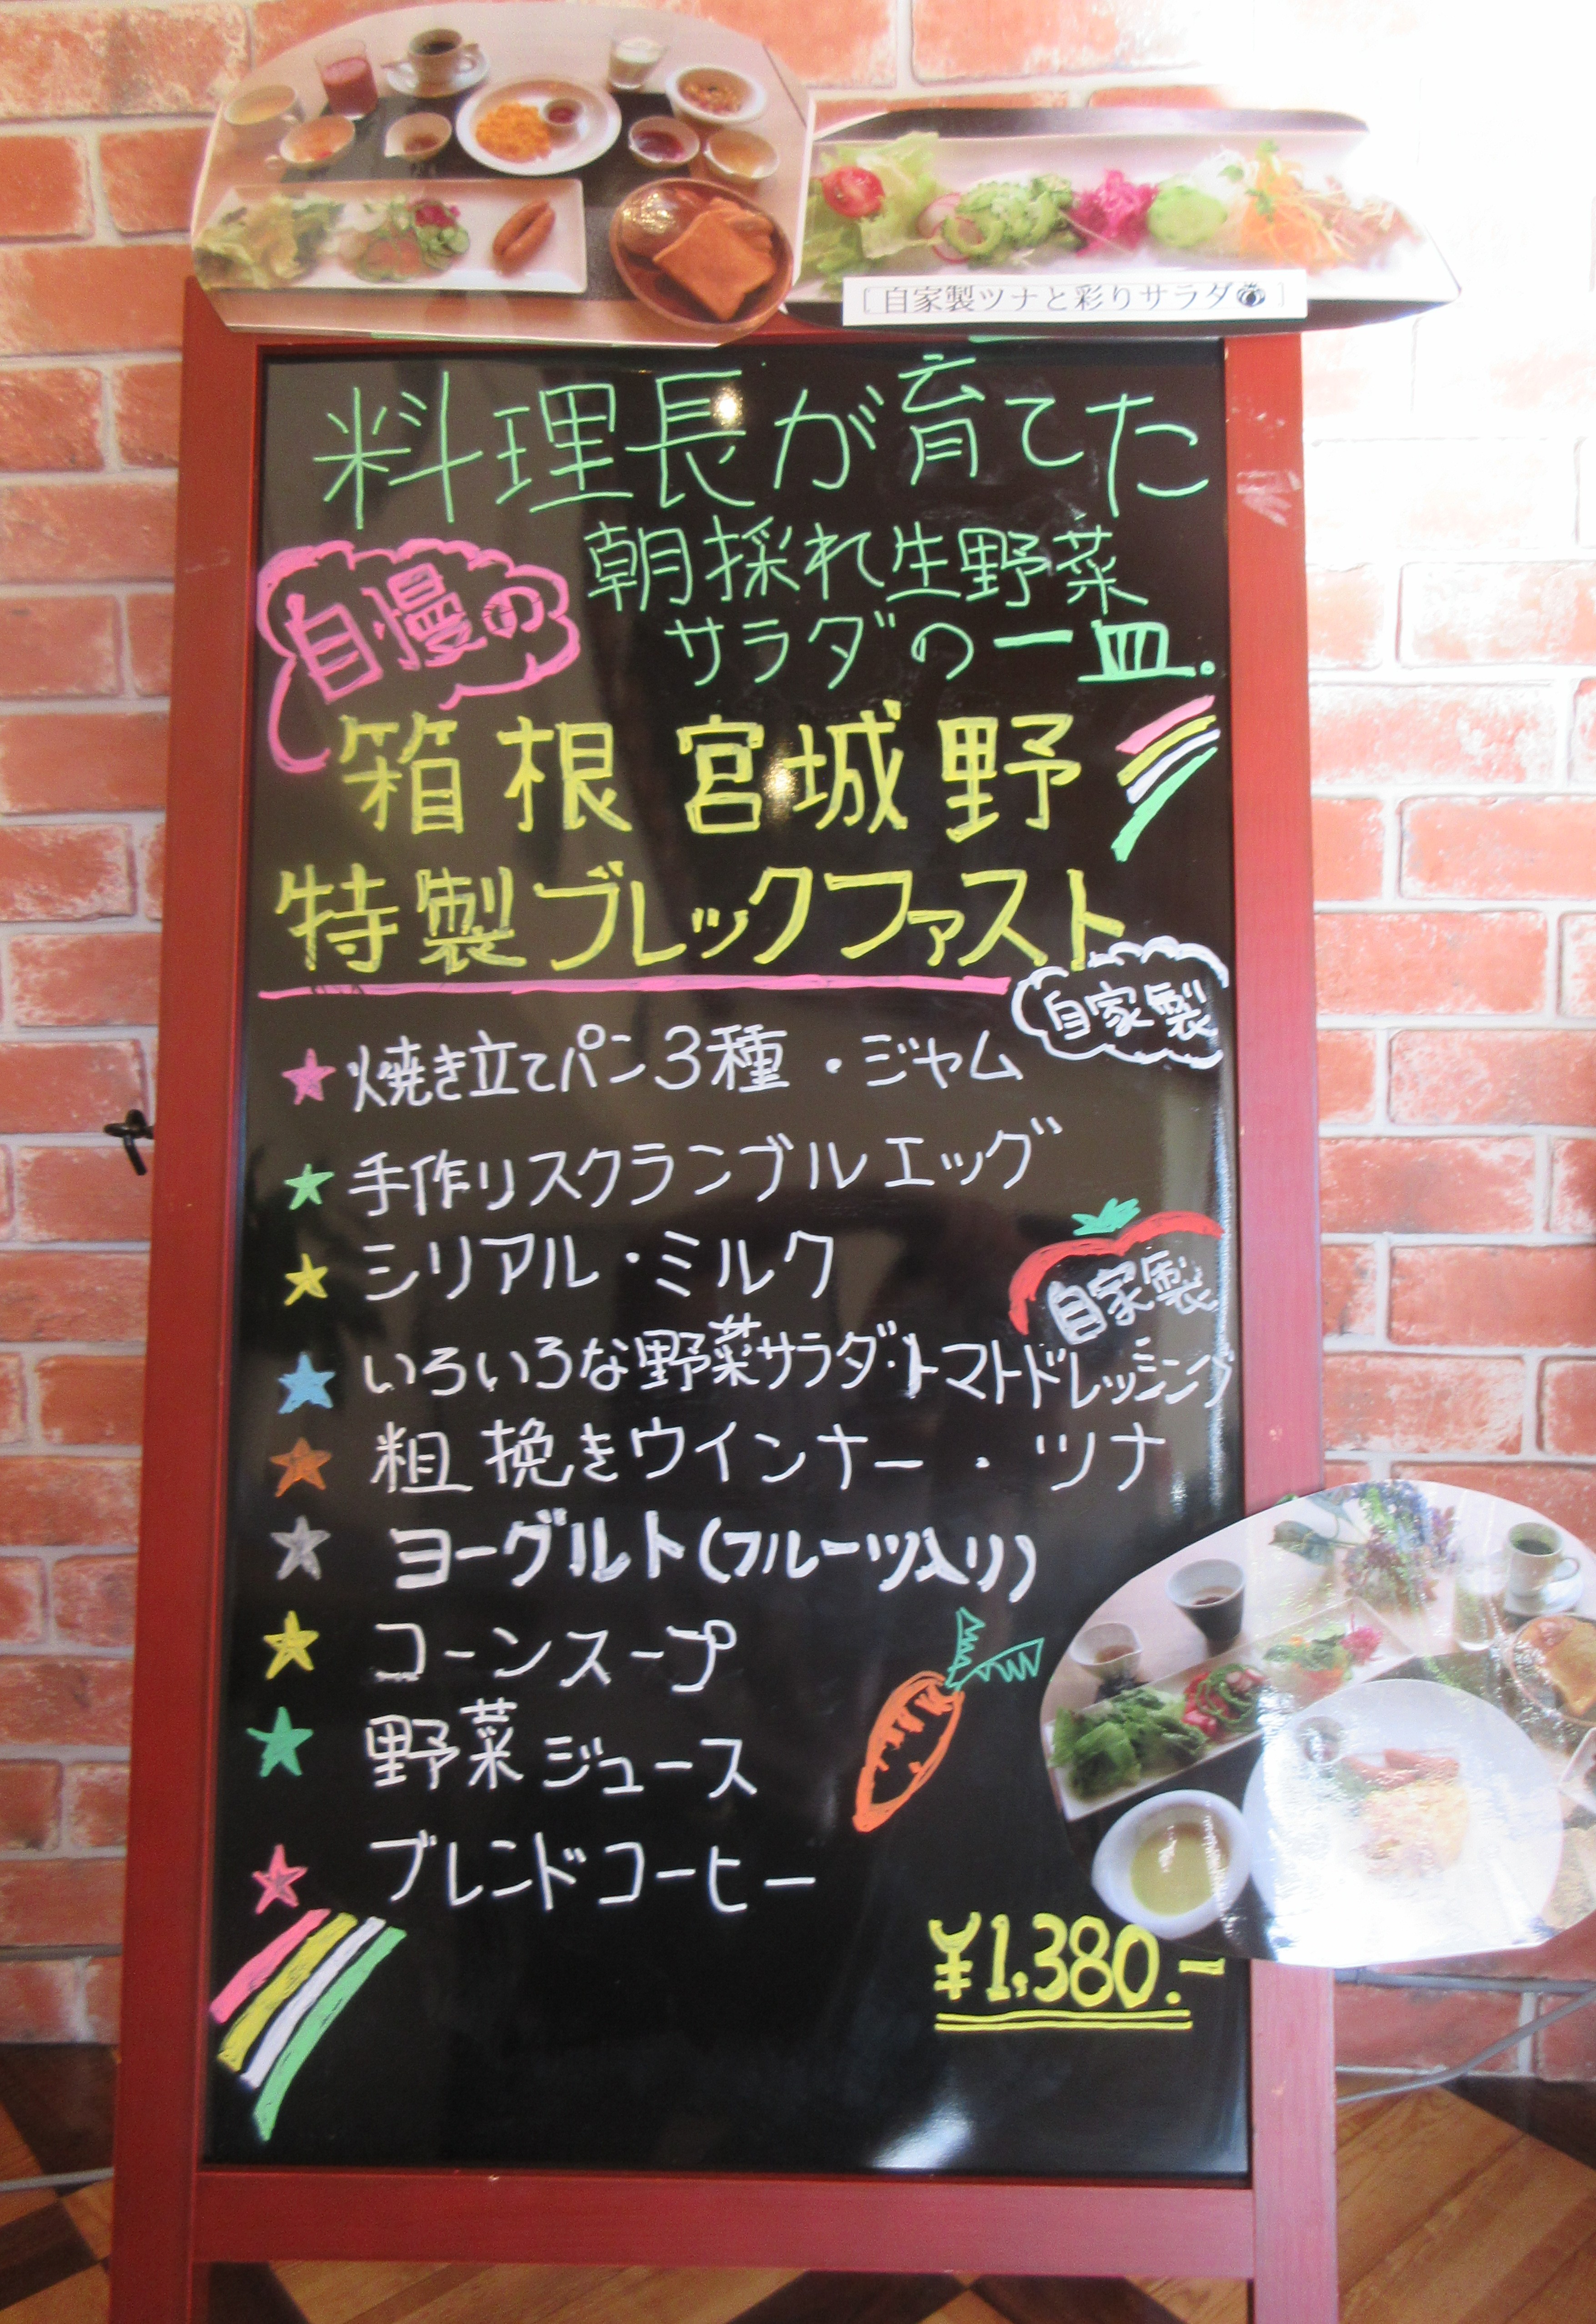 [自家製ツナと彩りサラダ]
料理長が育てた
自慢の
朝採れ生野菜
サラダの一皿.
箱根宮城野
特製ブレックファスト
自家製
★焼き立てパン3種・ジャム
★手作りスクランブルエッグ
★シリアル・ミルク
自家製
★いろいろな野菜サラダ・トマトドレッシング
★粗挽きウインナー・ツナ
★ヨーグルト(フルーツ入り)
★コーンスープ
★野菜ジュース
★ブレンドコーヒー
¥1,380.-